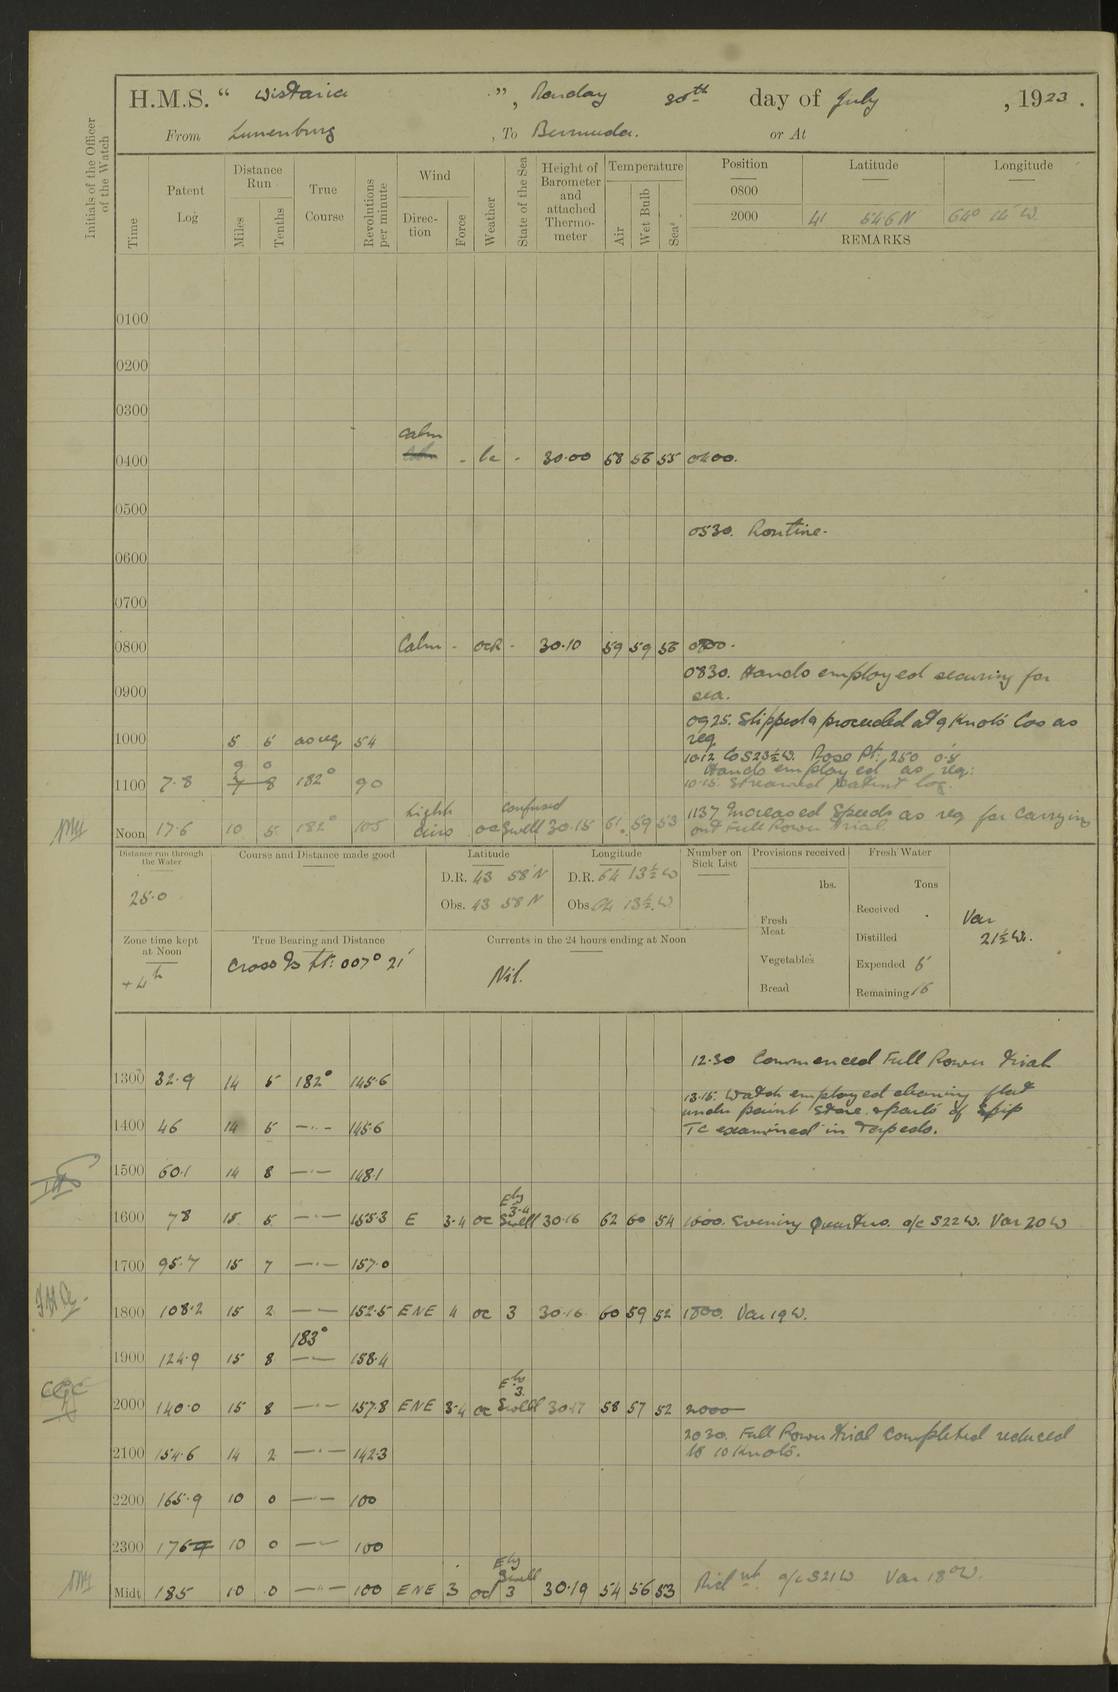 H.M.S. “ Wistaria ”, Monday 30th day of July , 1923 .
From Lunenburg , To Bermuda. or At
Initials of the Officer of the Watch
Time Patent Log Distance Run Miles Tenths True Course Revolutions per minute Wind Direc-tion Force Weather State of the Sea Height of Barometer and attached Thermo-meter Temperature Air Wet Bulb Sea Position Latitude Longitude
0800
2000 41 54.6 N 64° 14' W
REMARKS
0100
0200
0300
calm
0400 - bc - 30.00 58 56 55 0400.
0500
0530. Routine.
0600
0700
0800 Calm - - 30.10 59 59 56 0800.
0830. Hands employed securing for
sea.
0900
0925. Slipped & proceeded at 9 knots Cos as
req
1000 5 5 as req 54
1012 Co S23½W. Rose Pt: 250 0.8
9 0 Hands employed as req:
1100 7.8 182° 90
10.15. Streamed patent log.
Light confused
1137 Increased Speeds as req for carrying
Noon 17.6 10 5 182° 105 airs oc Swell 30.15 61 59 53
out Full Power Trial
Distance run through the Water Course and Distance made good Latitude Longitude Number on Sick List Provisions received Fresh Water
25.0
D.R. 43 58 N D.R. 64 13½ W
Obs. 43 58 N Obs 64 13½ W
lbs. Tons
Received
Fresh Meat
Var
21½ W.
Distilled
Zone time kept at Noon True Bearing and Distance Currents in the 24 hours ending at Noon
+4h Cross Is Lt: 007° 21' Nil.
Vegetables Expended 5
Bread Remaining 16
12.30 Commenced Full Power Trial
1300 32.9 14 5 182° 145.6
13.15. Watch employed cleaning flat
under paint store & parts of Ship
1400 46 14 5 —·— 145.6
TC examined in Torpedo.
1500 60.1 14 8 —·— 148.1
Ely
3-4
1600 78 15 5 —·— 155.3 E 3-4 oc Swell 30.16 62 60 54 1600. Evening Quarters. a/c S22W. Var 20W
1700 95.7 15 7 —·— 157.0
1800 108.2 15 2 —·— 152.5 ENE 4 oc 3 30.16 60 59 52 1800. Var 19W.
183°
1900 124.9 15 8 —·— 158.4
Ely
3.
2000 140.0 15 8 —·— 157.8 ENE 3-4 oc Swell 30.17 58 57 52 2000
2030. Full Power Trial completed reduced
to 10 Knots.
2100 154.6 14 2 —·— 142.3
2200 165.9 10 0 —·— 100
2300 10 0 —·— 100
Ely
Swell
Midt 185 10 0 —·— 100 ENE 3 od 3 30.19 54 56 53 a/c S21W Var 18°W.